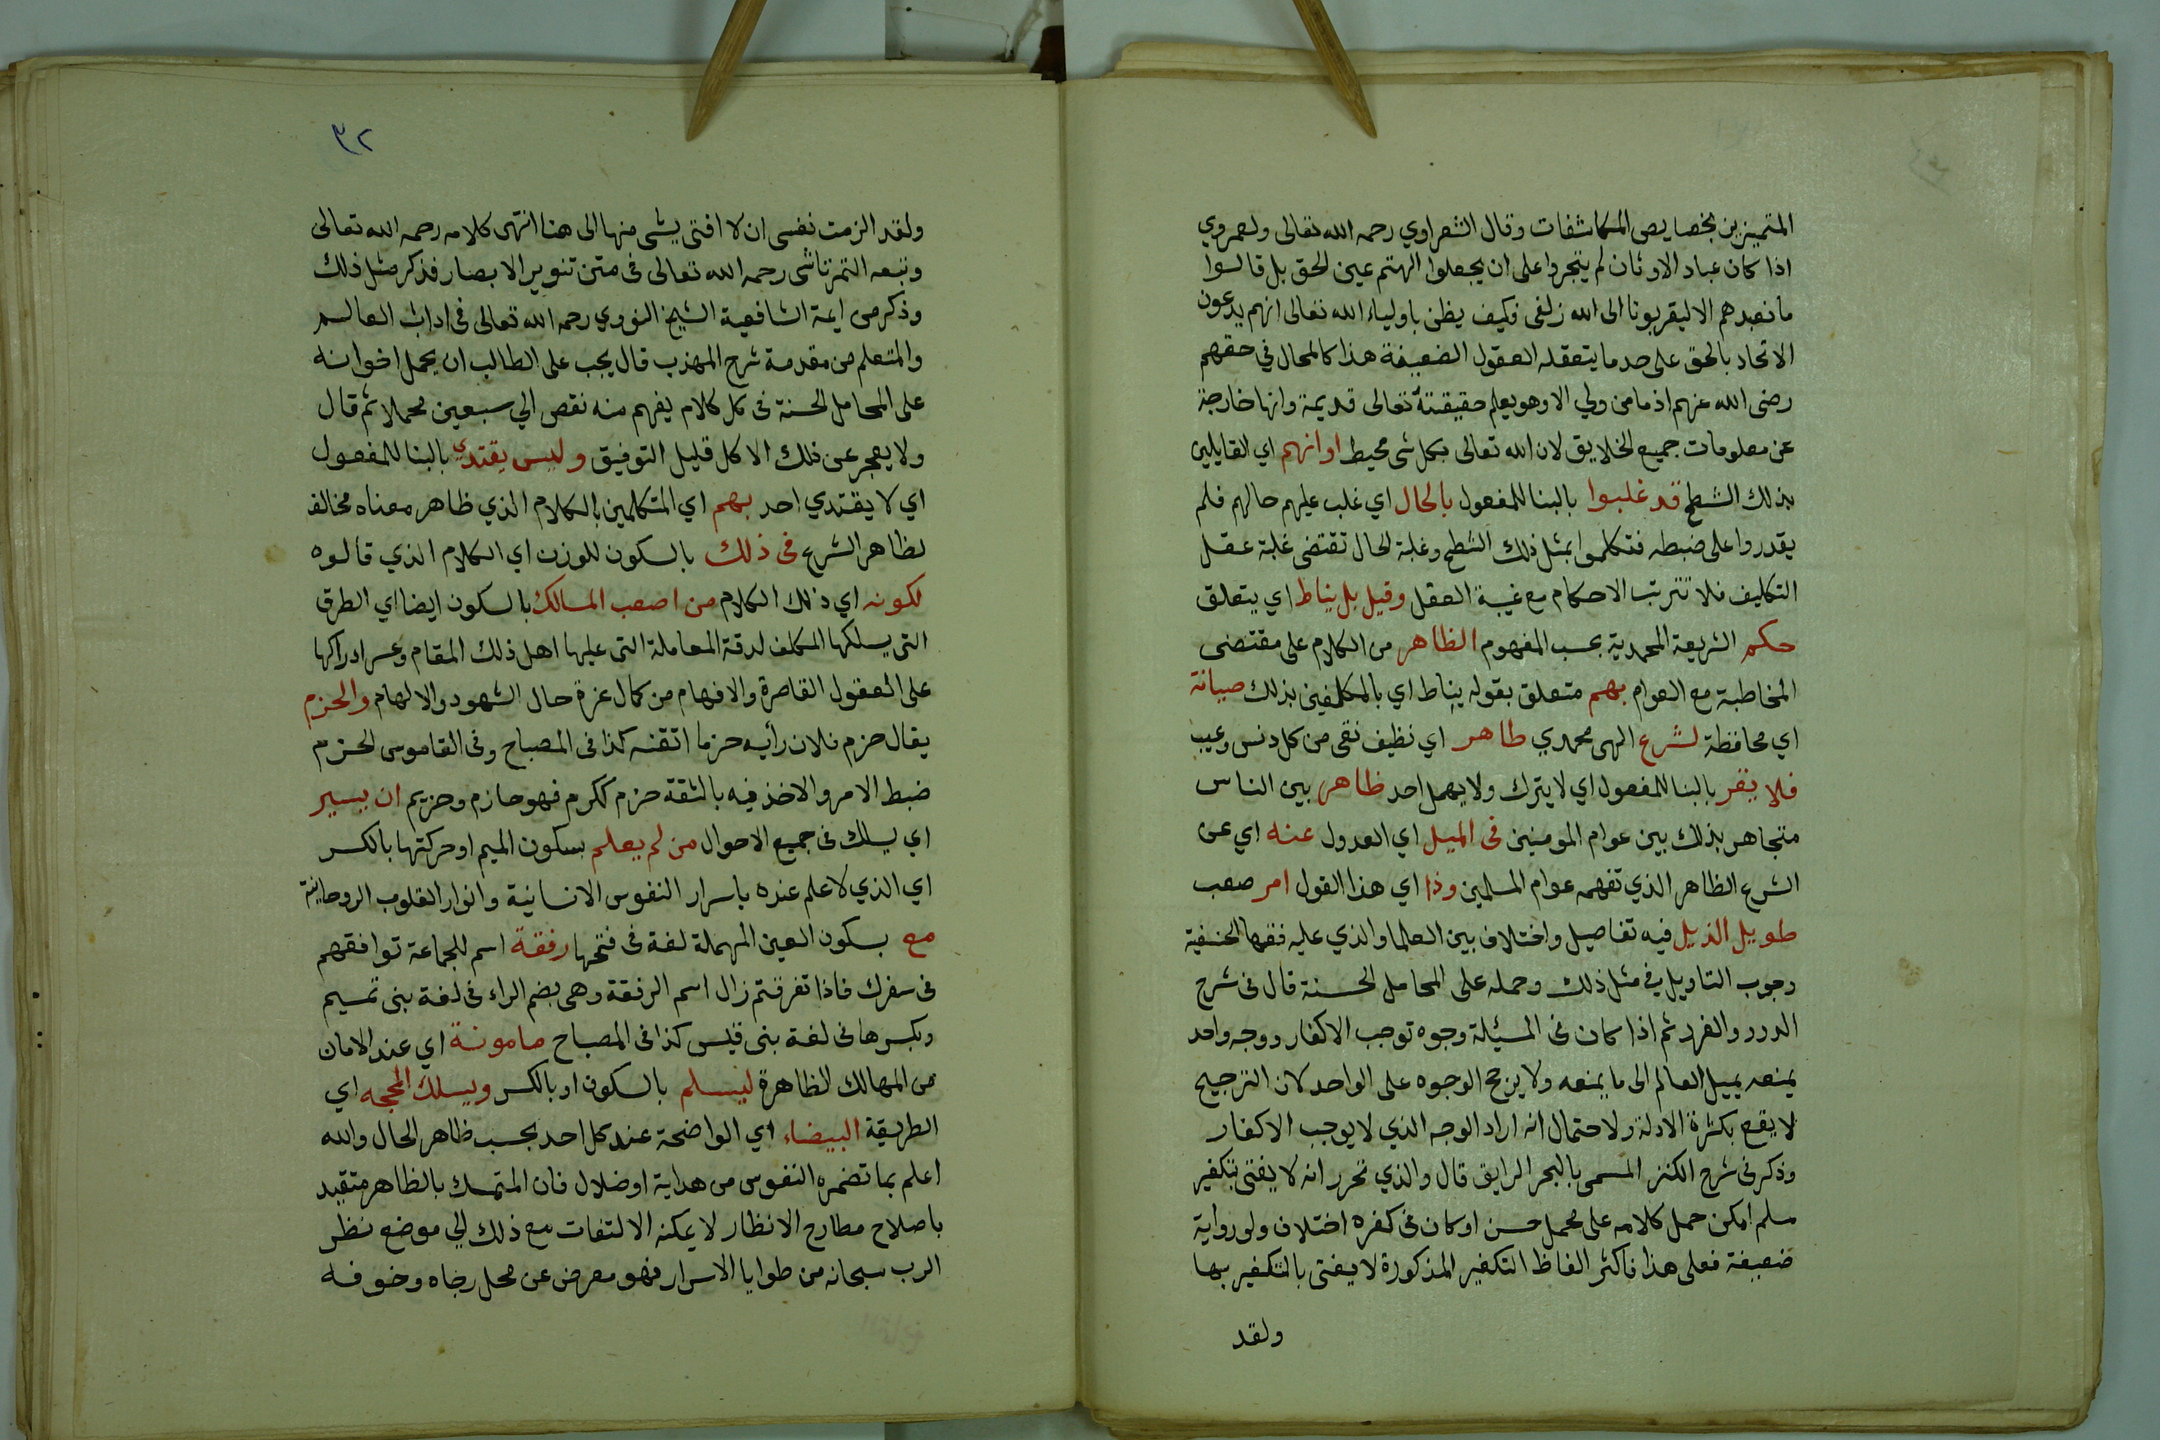 المتميزين بخصايص المكاشفات وقال الشعراوي رحمه الله تعالى ولعمروي
اذا كان عباد الاوثان لم يتجروا على ان يجعلوا الهتهم عين الحق بل قالوا
ما نعبدهم الا ليقربونا الى الله زلفى فكيف يظن باولياء الله تعالى انهم يدعون
الاتحاد بالحق على حد ما يتعقله العقول الضعيفة هذا كالمحال في حقهم
رضى الله عنهم اذ ما من ولي الا وهو يعلم حقيقتة تعالى قديمة وانها خارجة
عن معلومات جميع الخلايق لان الله تعالى بكل شى محيط او انهم اي القايلين
بذلك الشطح قد غلبوا بالبنا للمفعول بالحال اي غلب عليهم حالهم فلم
يقدروا على ضبطه فتكلموا بمثل ذلك الشطح وغلبة الحال تقتضى غلبة عقل
التكليف فلا تترتب الاحكام مع غيبة العقل وقيل بل يناط اي يتعلق
حكم الشريعة المحمدية بحسب المفهوم الظاهر من الكلام على مقتضى
المخاطبة مع العوام بهم متعلق بقوله يناط اي بالمكلفين بذلك صيانة
اي محافظة لشرع الهى محمدي طاهر اي نظيف نقى من كل دنس وعيب
فلا يقر بالبنا للمفعول اي لا يترك ولا يهمل احد ظاهر بين الناس
متجاهر بذلك بين عوام المومنين فى الميل اي العدول عنه اي عن
الشرع الظاهر الذي تفهمه عوام المسلمين وذا اي هذا القول امر صعب
طويل الذيل فيه تفاصيل واختلاف بين العلما والذي عليه فقها الحنفية
وجوب التاويل في مثل ذلك وحمله على المحامل الحسنة قال فى شرح
الدرر والغرر ثم اذا كان فى المسيئلة وجوه توجب الاكفار ووجه واحد
يمنعه يميل العالم الى ما يمنعه ولا يرجح الوجوه على الواحد لان الترجيح
لا يقع بكثرة الادلة ولاحتمال انه اراد الوجه الذي لا يوجب الاكفار
وذكر فى شرح الكنز المسمى بالبحر الرايق قال والذي تحرر انه لا يفتى بتكفير
مسلم امكن حمل كلامه على محمل حسن او كان فى كفره اختلاف ولو رواية
ضعيفة فعلى هذا فاكثر الفاظ التكفير المذكورة لا يفتى بالتكفير بها
ولقد
٣٢
ولقد الزمت نفسى ان لا افتى بشى منها الى هنا انتهى كلامه رحمه الله تعالى
وتبعه التمرتاشى رحمه الله تعالى فى متن تنوير الابصار فذكر مثل ذلك
وذكر من ايمة الشافعية الشيخ النووي رحمه الله تعالى فى اداب العالم
والمتعلم من مقدمة شرح المهذب قال يجب على الطالب ان يحمل اخوانه
على المحامل الحسنة فى كل كلام يفهم منه نقص الي سبعين محملا ثم قال
ولا يعجز عن ذلك الا كل قليل التوفيق وليس يقتدي بالبنا للمفعول
اي لا يقتدي احد بهم اي المتكلمين بالكلام الذي ظاهر معناه مخالف
لظاهر الشرع فى ذلك بالسكون للوزن اي الكلام الذي قالوه
لكونه اي ذلك الكلام من اصعب المسالك بالسكون ايضا اي الطرق
التى يسلكها المكلف لدقة المعاملة التى عليها اهل ذلك المقام وعسر ادراكها
على العقول القاصرة والافهام من كمال عزة حال الشهود والالهام والحزم
يقال حزم فلان رأيه حزما اتقنه كذا فى المصباح وفى القاموس الحزم
ضبط الامر والاخذ فيه بالثقة حزم ككرم فهو حازم وحزيم ان يسير
اي يسلك فى جميع الاحوال من لم يعلم بسكون الميم او حركتها بالكسر
اي الذي لا علم عنده باسرار النفوس الانسانية وانوار القلوب الروحانية
مع بسكون العين المهملة لغة فى فتحها رفقة اسم للجماعة توافقهم
فى سفرك فاذا تفرقتم زال اسم الرفقة وهى بضم الراء فى لغة بنى تميم
وبكسرها فى لغة بنى قيس كذا فى المصباح مامونة اي عند الامان
من المهالك الظاهرة ليسلم بالسكون او بالكسر ويسلك المحجه اي
الطريقة البيضاء اي الواضحة عند كل احد بحسب ظاهر الحال والله
اعلم بما تضمره النفوس من هداية او ضلال فان المتمسك بالظاهر متقيد
باصلاح مطارح الانظار لا يمكنه الالتفات مع ذلك الي موضع نظر
الرب سبحانه من طوايا الاسرار فهو معرض عن محل رجاه وخوفه